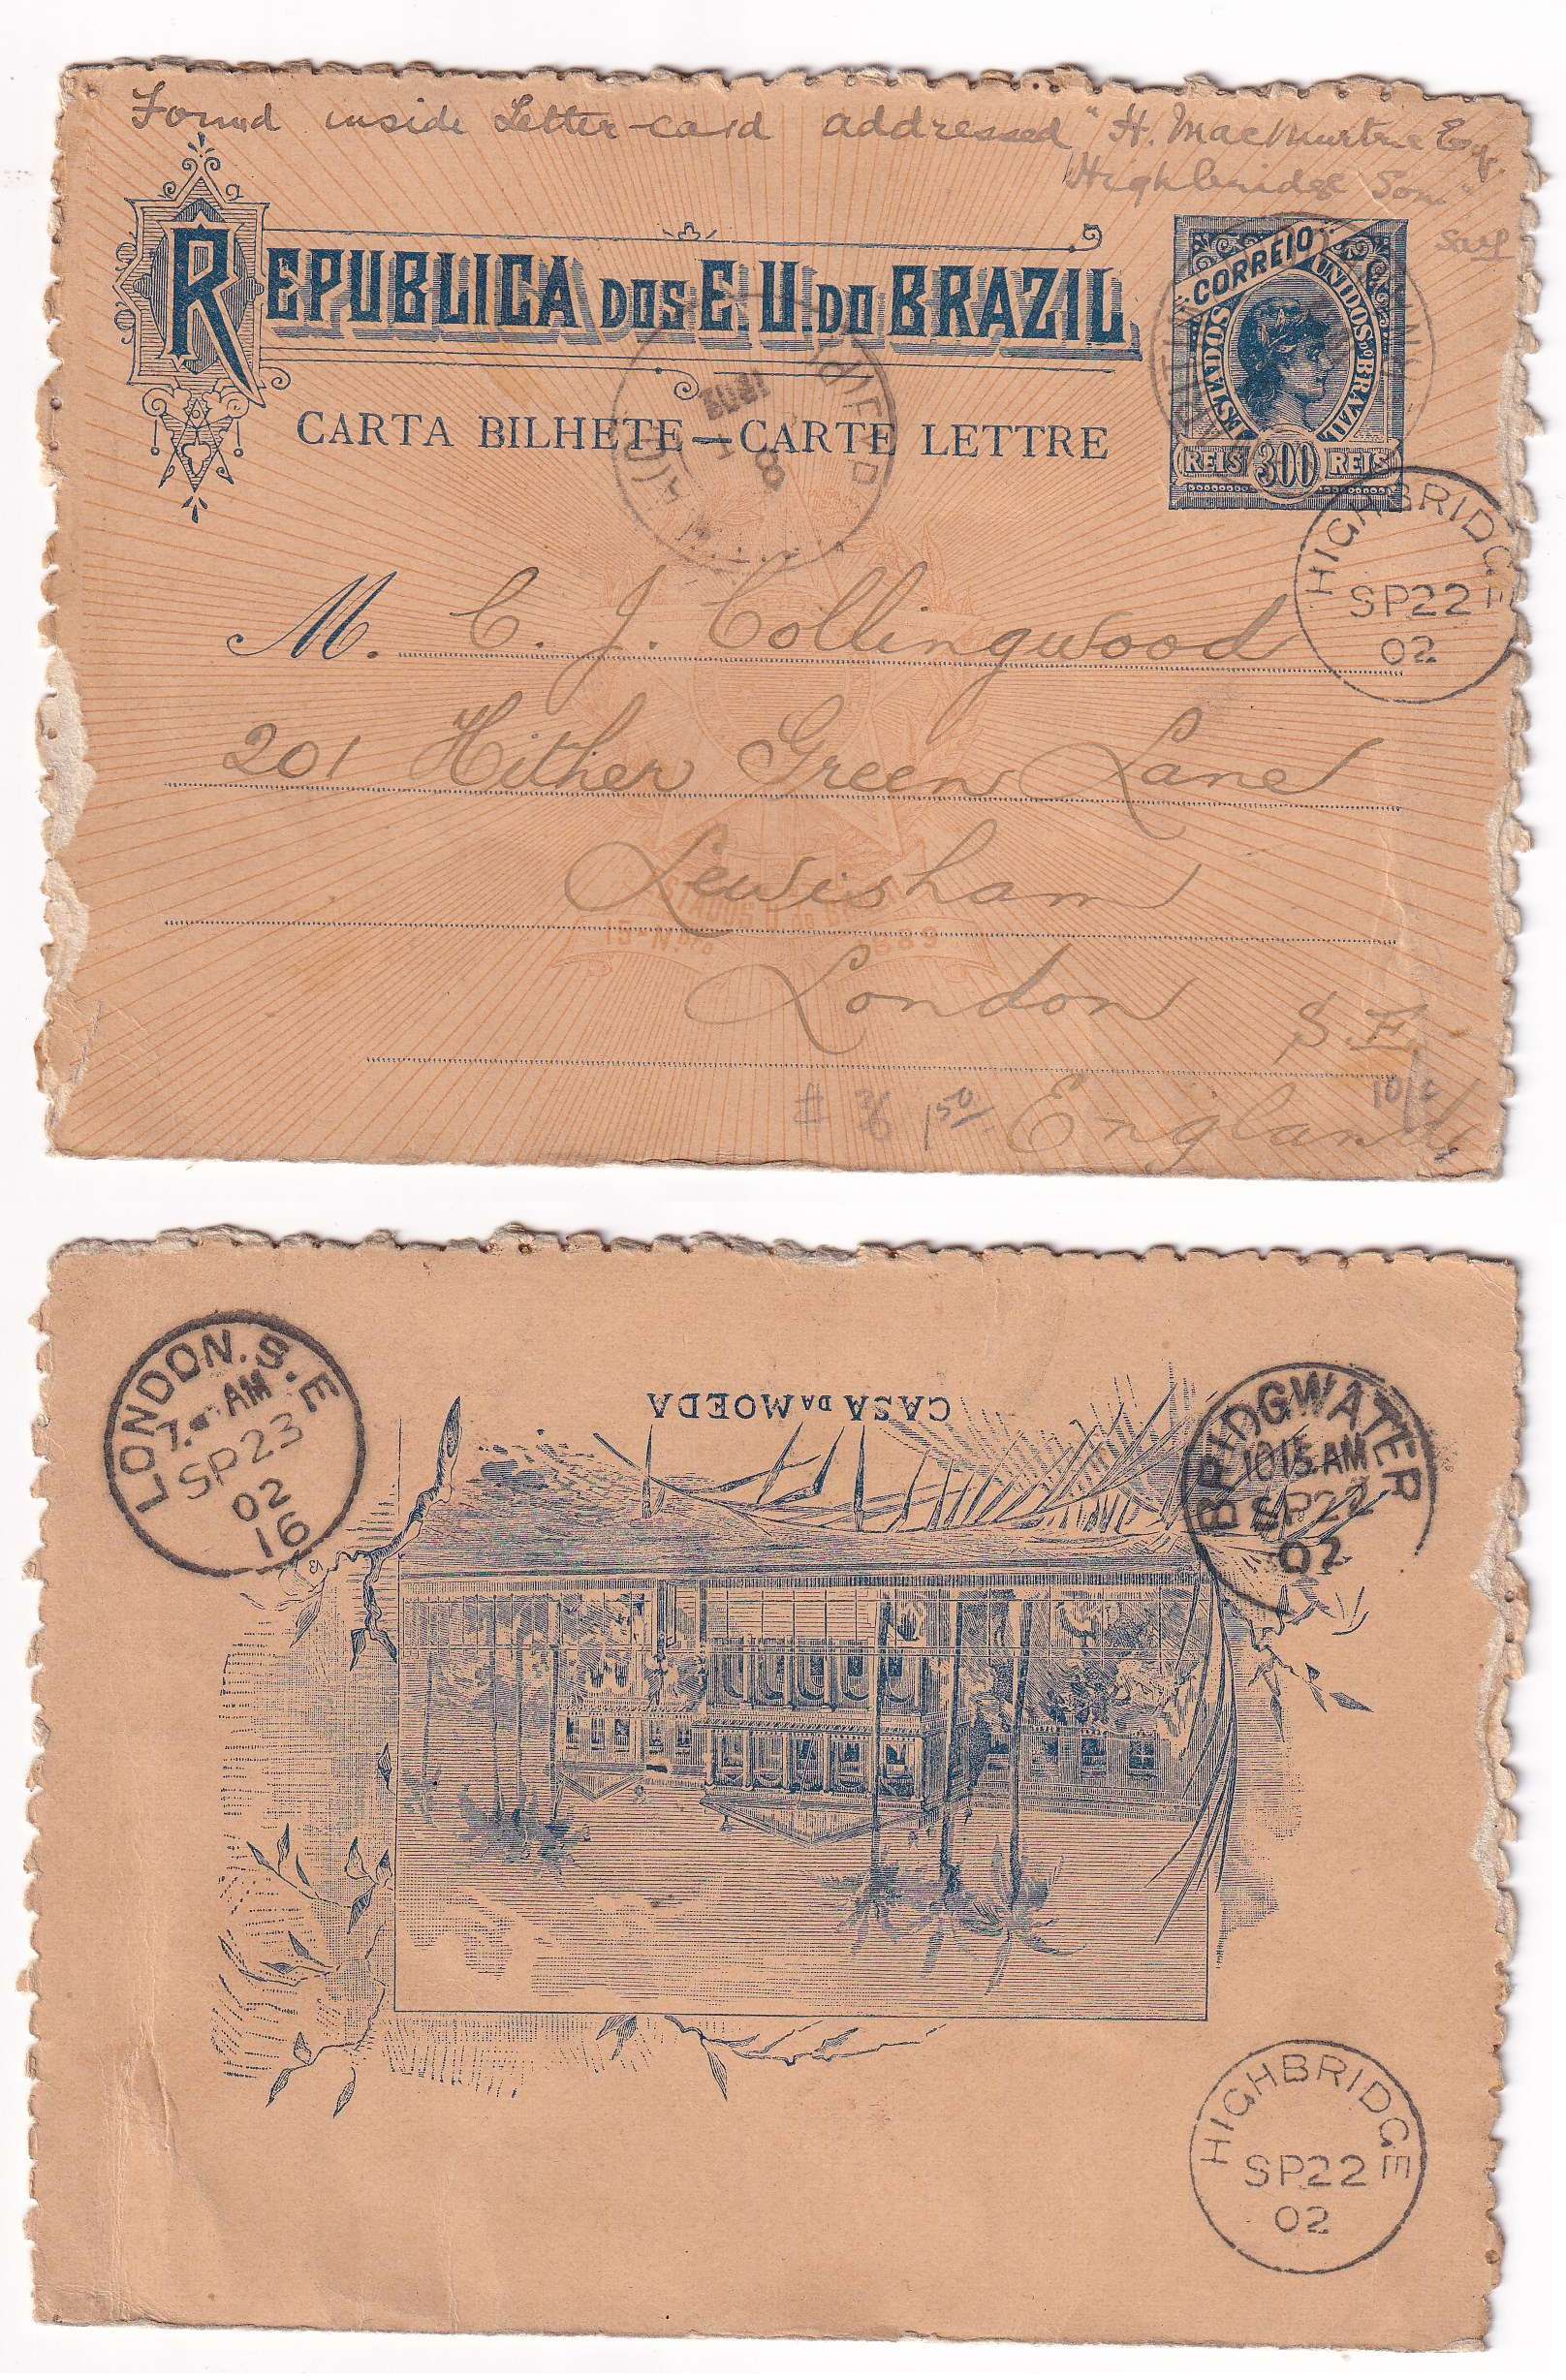 Found inside Letter-card addressed "H. MacMurtrie Esq.
Highbridge Som"
REPUBLICA DOS E.U. DO BRAZIL
CORREIO
ESTADOS UNIDOS DO BRAZIL
REIS 300 REIS
CARTA BILHETE—CARTE LETTRE
HIGHBRIDGE
SP 22
02
M. C. J. Collingwood
201 Hither Green Lane
Lewisham
ESTADOS U. do BRAZIL
15 Nbro 1889
London S.E.
England
1 50
LONDON. S.E
AM
SP 23
02
16
CASA DA MOEDA
BRIDGWATER
1015 AM
SP 22
02
HIGHBRIDGE
SP 22
02